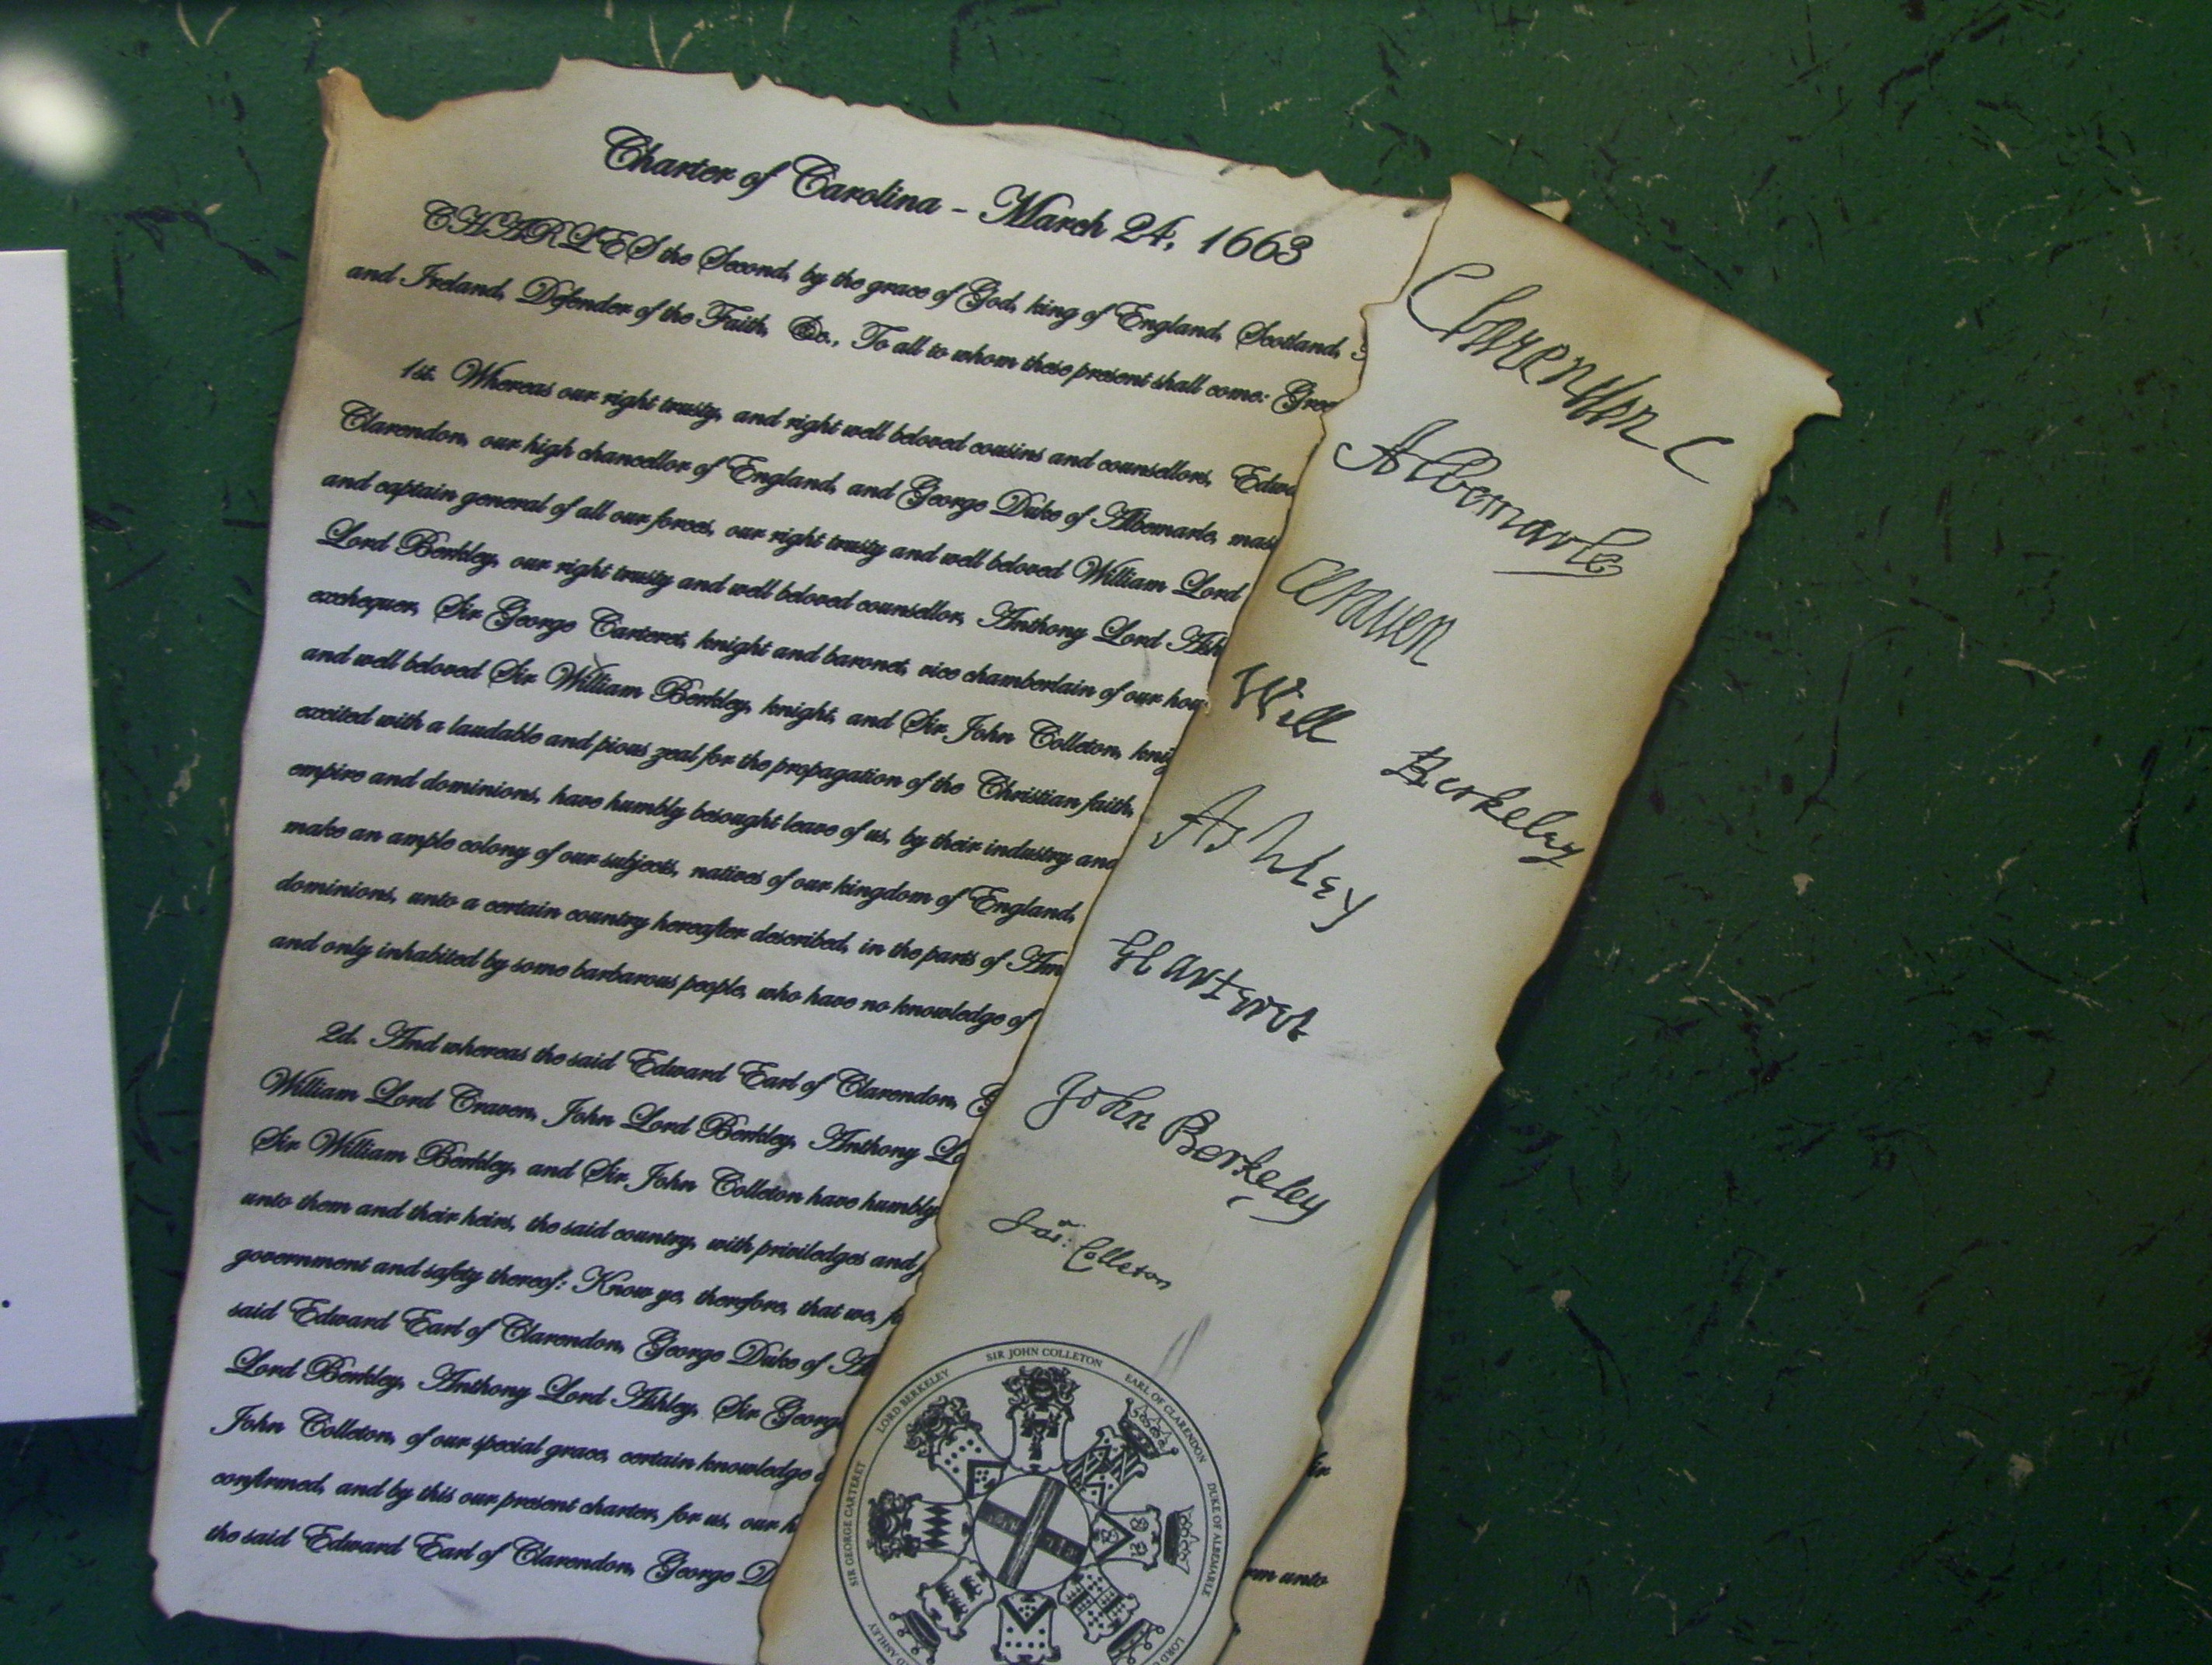 Charter of Carolina - March 24, 1663
CHARLES the Second, by the grace of God, king of England, Scotland,
and Ireland, Defender of the Faith, &c., To all to whom these present shall come: Gree
1st. Whereas our right trusty, and right well beloved cousins and counsellors, Edwa
Clarendon, our high chancellor of England, and George Duke of Albemarle, mas
and captain general of all our forces, our right trusty and well beloved William Lord
Lord Berkley, our right trusty and well beloved counsellor, Anthony Lord Ash
exchequer, Sir George Carteret, knight and baronet, vice chamberlain of our hou
and well beloved Sir William Berkley, knight, and Sir John Colleton, knig
excited with a laudable and pious zeal for the propagation of the Christian faith,
empire and dominions, have humbly besought leave of us, by their industry and
make an ample colony of our subjects, natives of our kingdom of England,
dominions, unto a certain country hereafter described, in the parts of Am
and only inhabited by some barbarous people, who have no knowledge of
2d. And whereas the said Edward Earl of Clarendon, G
William Lord Craven, John Lord Berkley, Anthony Lo
Sir William Berkley, and Sir John Colleton have humbly
unto them and their heirs, the said country, with priviledges and j
government and safety thereof: Know ye, therefore, that we, f
said Edward Earl of Clarendon, George Duke of A
Lord Berkley, Anthony Lord Ashley, Sir Georg
John Colleton, of our special grace, certain knowledge
confirmed, and by this our present charter, for us, our h
the said Edward Earl of Clarendon, George D
Clarendon C
Albemarle
Craven
Will Berkeley
Ashley
GCarteret
John Berkeley
Jo: Colleton
SIR JOHN COLLETON
EARL OF CLARENDON
DUKE OF ALBEMARLE
LORD BERKELEY
SIR GEORGE CARTERET
ASHLEY
LORD
unto